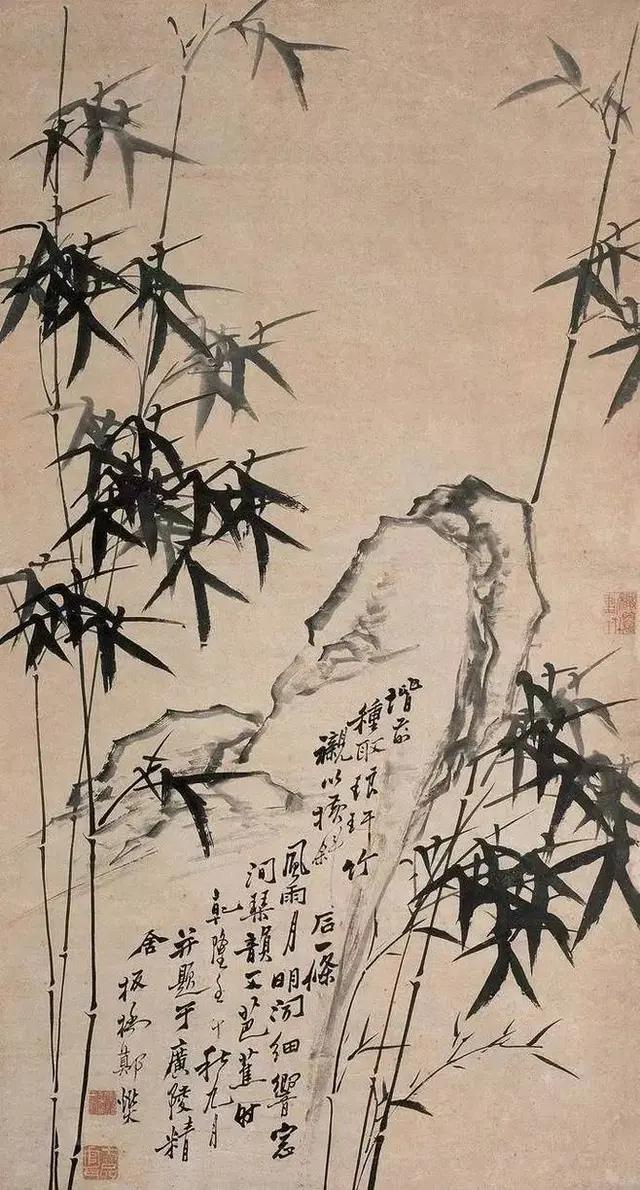 階前
種取琅玕竹
襯以橫斜
石一條
風雨月明聞細響窓
間琴韻芭蕉時
乾隆壬午秋九月
并題于廣陵精
舍板橋鄭燮